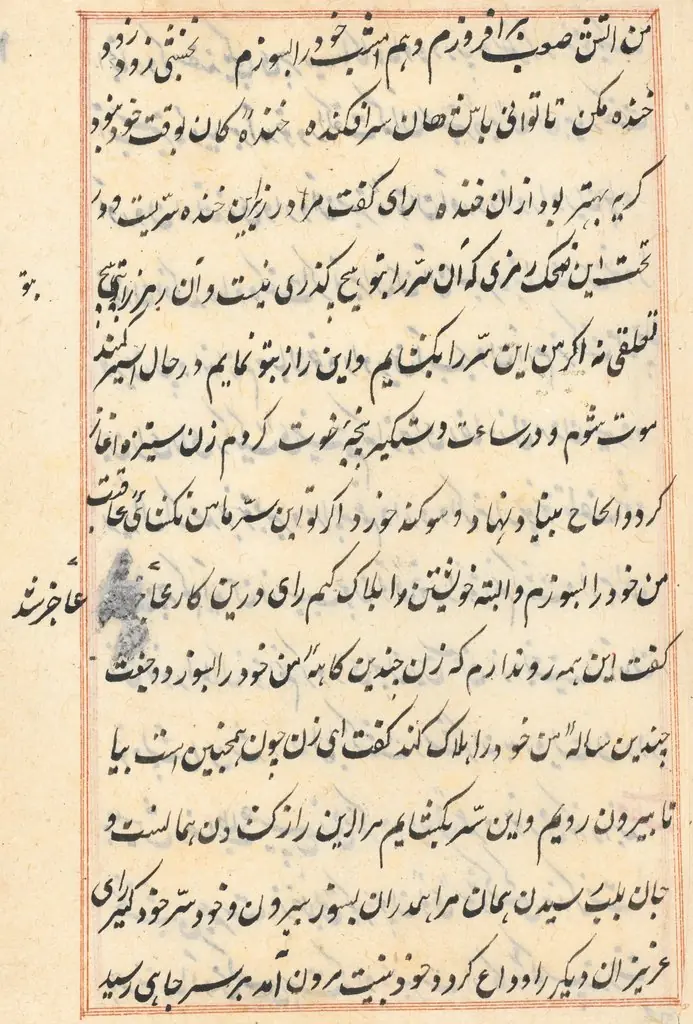 من آتش صعب برافروزم و هم امشب خود را بسوزم نخشبی زود زود
خنده مکن تا توانی باش هان سرافکنده خندۀ کان بوقت خود نبود
کریه بهتر بود ازان خنده رای کفت مرا در زیر این خنده سریست و در
تحت این ضحک رمزی که آن سر را بتو هیچ کذری نیست و آن رمز را بتو هیچ
بتو
تعلقی نه اکر من این سر را بکشایم و این راز بتو نمایم در حال اسیر کمند
موت شوم و در ساعت دستکیر پنجۀ فوت کردم زن ستیزه آغاز
کرد و الحاح بنیاد نهاد و سوکند خورد اکر تو این سر با من نکشائی عاقبت
من خود را بسوزم و البته خویشتن را هلاک کنم رای درین کار
عاجز شد
کفت این همه روا ندارم که زن چندین کاهۀ من خود را بسوزد و جفت
چندین سالۀ من خود را هلاک کند کفت ای زن چون همچنین است بیا
تا بیرون رویم و این سر بکشایم مرا این راز کشادن همانست و
جان بلب رسیدن همان مرا همدران بسوز بیرون و خود سر خود کیر رای
عزیزان دیکر را وداع کرد و خود بنیت مردن آمد بر سر چاهی رسید